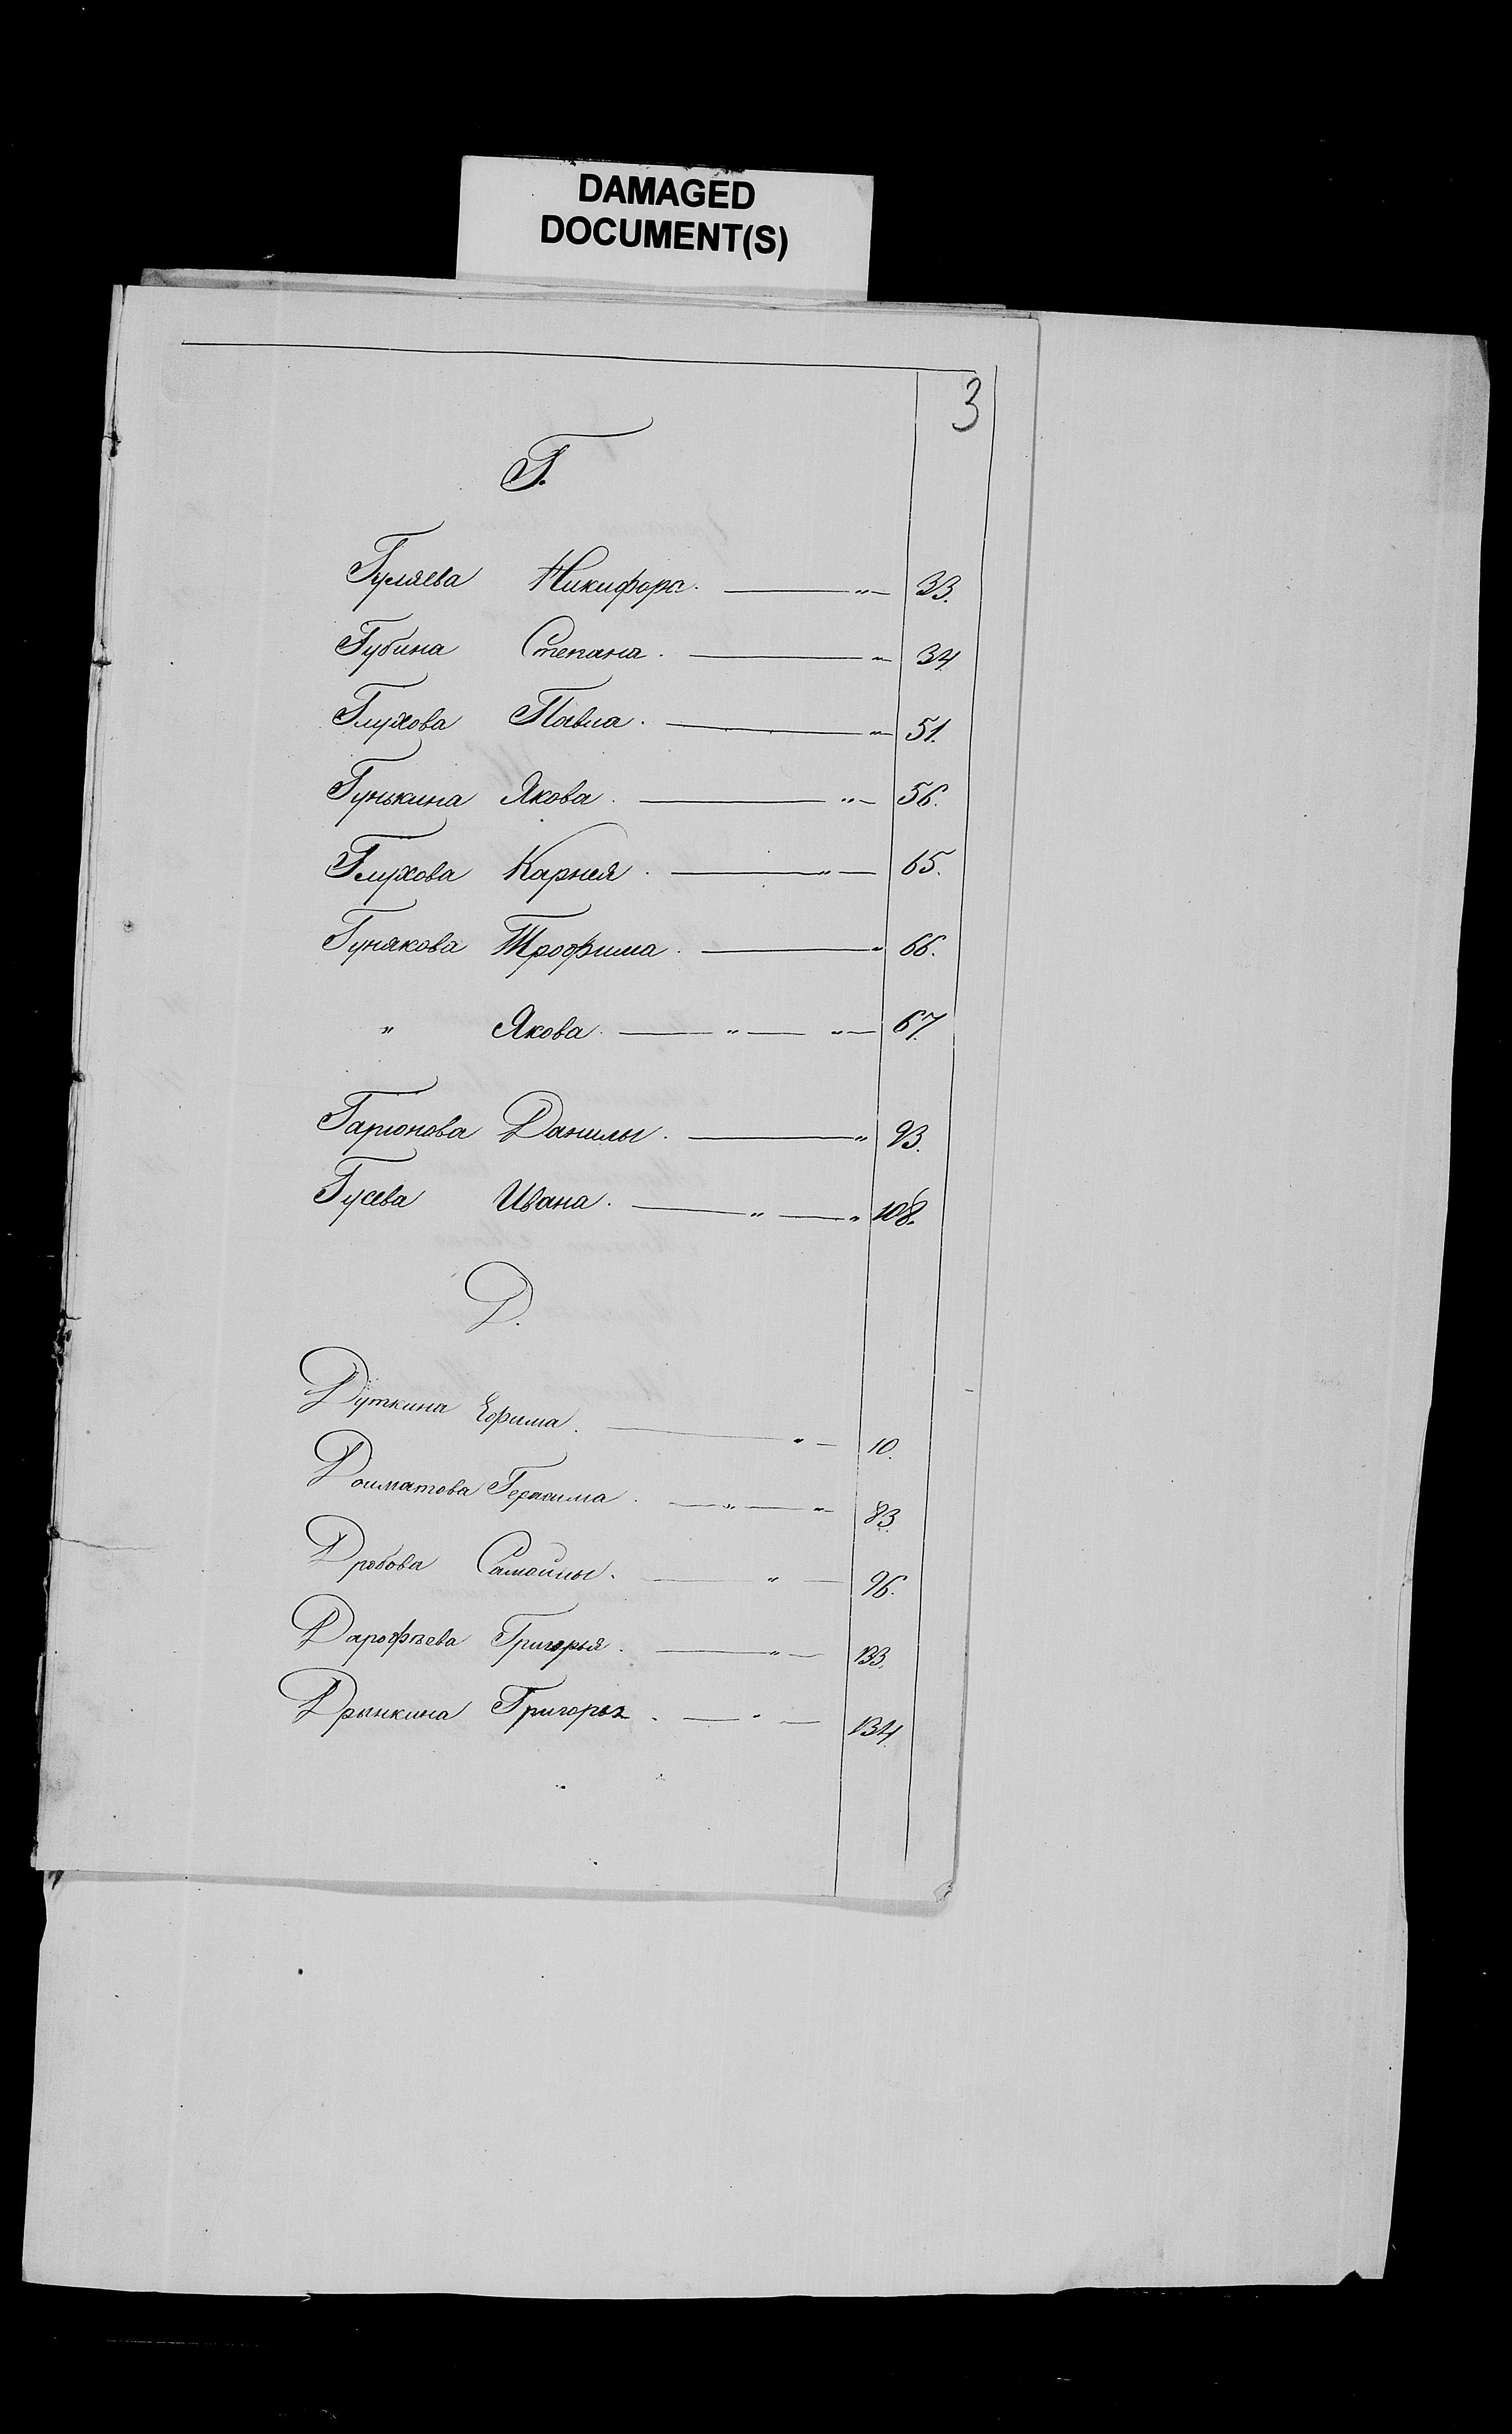 DAMAGED
DOCUMENT(S)
3
Г.
Гуляева Никифора. — „ — 33.
Губина Степана. — „ 34.
Глухова Павла. — „ — 51.
Гунькина Якова. — „ — 56.
Глухова Карнея. — „ — 65.
Гунякова Трофима. — „ 66.
„ Якова. — „ — „ — 67.
Гарюнова Данилы. — „ 93.
Гусева Ивана. — „ — „ 108.
Д.
Дуткина Ефима. — „ — 10.
Долматова Герасима. — „ — „ 83.
Дробова Самойлы. — „ — 96.
Дарофѣева Григорья. — „ — 133.
Дрынкина Григорья. — „ — 134.